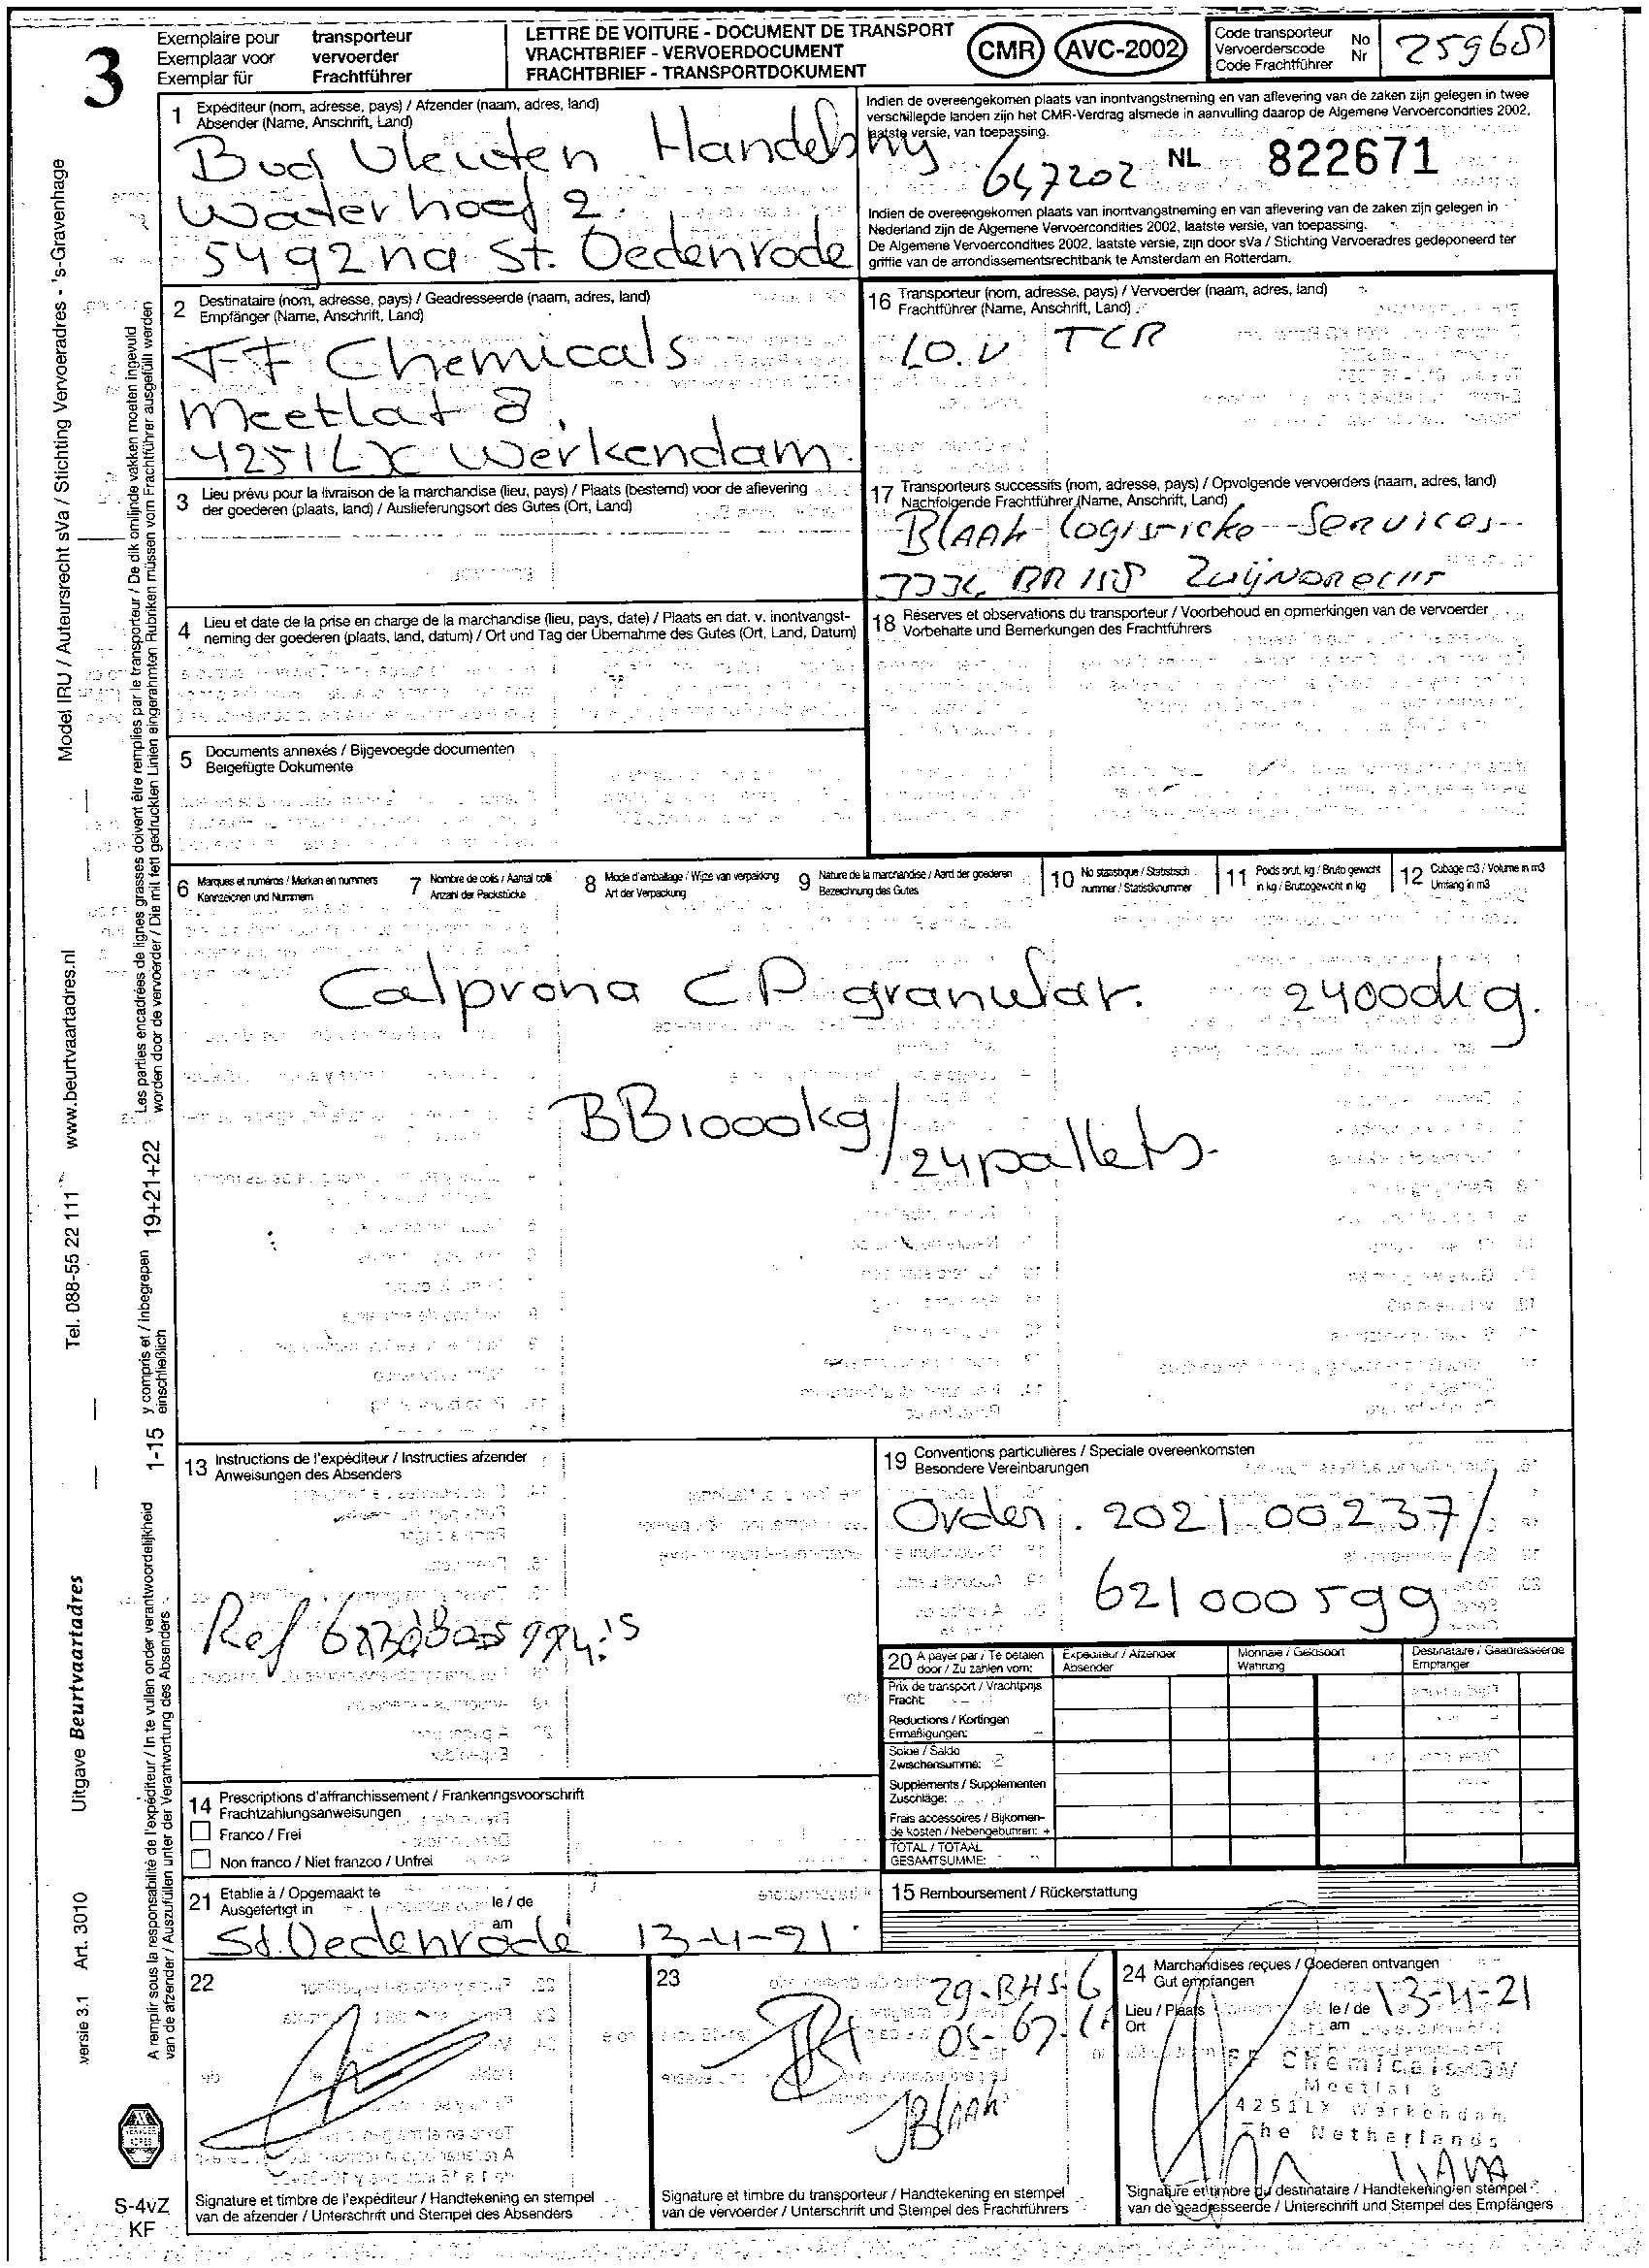 3
Exemplaire pour transporteur
Exemplaar voor vervoerder
Exemplar für Frachtführer
LETTRE DE VOITURE - DOCUMENT DE TRANSPORT
VRACHTBRIEF - VERVOERDOCUMENT
FRACHTBRIEF - TRANSPORTDOKUMENT
CMR AVC-2002
Code transporteur No
Vervoerderscode Nr
Code Frachtführer
25968
1 Expéditeur (nom, adresse, pays) / Afzender (naam, adres, land)
Absender (Name, Anschrift, Land)
Bud Vleuten Handelsmij
Waterhoef 2
5492na St. Oedenrode
Indien de overeengekomen plaats van inontvangstneming en van aflevering van de zaken zijn gelegen in twee
verschillende landen zijn het CMR-Verdrag alsmede in aanvulling daarop de Algemene Vervoercondities 2002,
laatste versie, van toepassing.
647202 NL 822671
Indien de overeengekomen plaats van inontvangstneming en van aflevering van de zaken zijn gelegen in
Nederland zijn de Algemene Vervoercondities 2002, laatste versie, van toepassing.
De Algemene Vervoercondities 2002, laatste versie, zijn door sVa / Stichting Vervoeradres gedeponeerd ter
griffie van de arrondissementsrechtbank te Amsterdam en Rotterdam.
2 Destinataire (nom, adresse, pays) / Geadresseerde (naam, adres, land)
Empfänger (Name, Anschrift, Land)
FF Chemicals
Meetlat 8
4251LX Werkendam
16 Transporteur (nom, adresse, pays) / Vervoerder (naam, adres, land)
Frachtführer (Name, Anschrift, Land)
I.O.V TCR
3 Lieu prévu pour la livraison de la marchandise (lieu, pays) / Plaats (bestemd) voor de aflevering
der goederen (plaats, land) / Auslieferungsort des Gutes (Ort, Land)
17 Transporteurs successifs (nom, adresse, pays) / Opvolgende vervoerders (naam, adres, land)
Nachfolgende Frachtführer (Name, Anschrift, Land)
Blaak logistieke Services
BR 158 Zwijndrecht
4 Lieu et date de la prise en charge de la marchandise (lieu, pays, date) / Plaats en dat. v. inontvangst-
neming der goederen (plaats, land, datum) / Ort und Tag der Übernahme des Gutes (Ort, Land, Datum)
18 Réserves et observations du transporteur / Voorbehoud en opmerkingen van de vervoerder
Vorbehalte und Bemerkungen des Frachtführers
5 Documents annexés / Bijgevoegde documenten
Beigefügte Dokumente
6 Marques et numéros / Merken en nummers
Kennzeichen und Nummern
7 Nombre de colis / Aantal colli
Anzahl der Packstücke
8 Mode d'emballage / Wijze van verpakking
Art der Verpackung
9 Nature de la marchandise / Aard der goederen
Bezeichnung des Gutes
10 No statistique / Statistisch
nummer / Statistiknummer
11 Poids brut, kg / Bruto gewicht
in kg / Bruttogewicht in kg
12 Cubage m3 / Volume in m3
Umfang in m3
Calprona CP granular. 24000kg.
BB1000kg/24pallets.
13 Instructions de l'expéditeur / Instructies afzender
Anweisungen des Absenders
Ref
19 Conventions particulières / Speciale overeenkomsten
Besondere Vereinbarungen
Order. 202100237/
621000599
20 A payer par / Te betalen
door / Zu zahlen vom:
Expéditeur / Afzender
Absender
Monnaie / Geldsoort
Währung
Destinataire / Geadresseerde
Empfänger
Prix de transport / Vrachtprijs
Fracht:
Reductions / Kortingen
Ermäßigungen: -
Solde / Saldo
Zwischensumme:
Suppléments / Supplementen
Zuschläge:
Frais accessoires / Bijkomen-
de kosten / Nebengebühren: +
TOTAL / TOTAAL
GESAMTSUMME:
14 Prescriptions d'affranchissement / Frankeringsvoorschrift
Frachtzahlungsanweisungen
Franco / Frei
Non franco / Niet franco / Unfrei
21 Etablie à / Opgemaakt te le / de
Ausgefertigt in am
St.Oedenrode 13-4-21
15 Remboursement / Rückerstattung
22
Signature et timbre de l'expéditeur / Handtekening en stempel
van de afzender / Unterschrift und Stempel des Absenders
23
29-BHS-6
JBlaak
Signature et timbre du transporteur / Handtekening en stempel
van de vervoerder / Unterschrift und Stempel des Frachtführers
24 Marchandises reçues / Goederen ontvangen
Gut empfangen
Lieu / Plaats le / de 13-4-21
Ort am
Chemicals
Meetlat 8
4251LX Werkendam
The Netherlands
Signature et timbre du destinataire / Handtekening en stempel
van de geadresseerde / Unterschrift und Stempel des Empfängers
Model IRU / Auteursrecht sVa / Stichting Vervoeradres - 's-Gravenhage
www.beurtvaartadres.nl
Tel. 088-55 22 111
Uitgave Beurtvaartadres
Art. 3010
versie 3.1
Les parties encadrées de lignes grasses doivent être remplies par le transporteur / De dik omlijnde vakken moeten ingevuld
worden door de vervoerder / Die mit fett gedruckten Linien eingerahmten Rubriken müssen vom Frachtführer ausgefüllt werden
19+21+22
y compris et / inbegrepen
einschließlich
1-15
A remplir sous la responsabilité de l'expéditeur / In te vullen onder verantwoordelijkheid
van de afzender / Auszufüllen unter der Verantwortung des Absenders
S-4vZ
KF